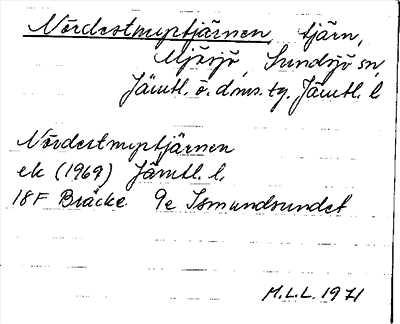 Nördestmyrtjärnen, tjärn,
Mjösjö, Sundsjö sn,
Jämtl. ö. dms. tg. Jämtl. l
Nördestmyrtjärnen
ek (1969) Jämtl. l.
18F Bräcke 9e Ismundsundet
M.L.L. 1971